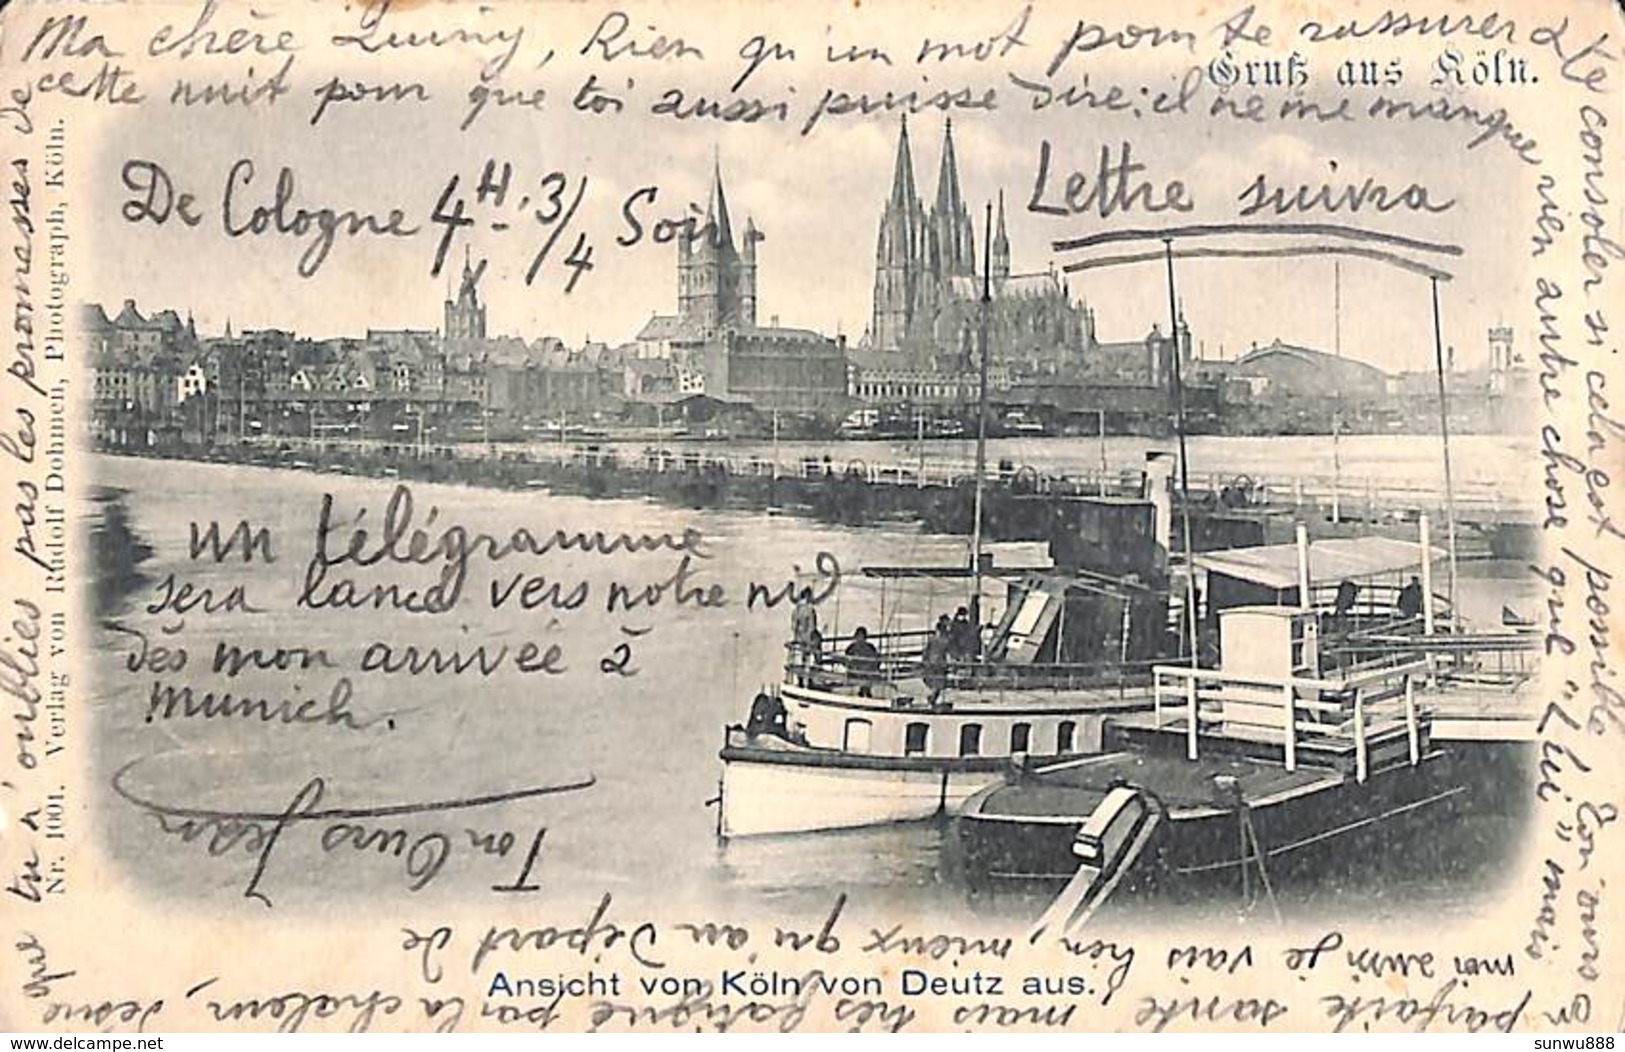 Ma chère Quiny, Rien qu'un mot pour te rassurer & te consoler si cela est possible ! Ton ours
cette nuit pour que toi aussi puisse dire: il ne me manque rien autre chose que "Lui" mais
Gruß aus Köln.
De Cologne 4H. 3/4 Soir.
Lettre suivra
un télégramme
sera lancé vers notre nid
dès mon arrivée à
Munich.
Ton Ours Jean
moi aussi je vais bien, mieux qu'au départ de
en parfaite santé mais très fatigué par la chaleur,
que tu n'oublies pas les promesses de
Nr. 1001. Verlag von Rudolf Dohmen, Photograph, Köln.
Ansicht von Köln von Deutz aus.
delcampe.net
sunwu888